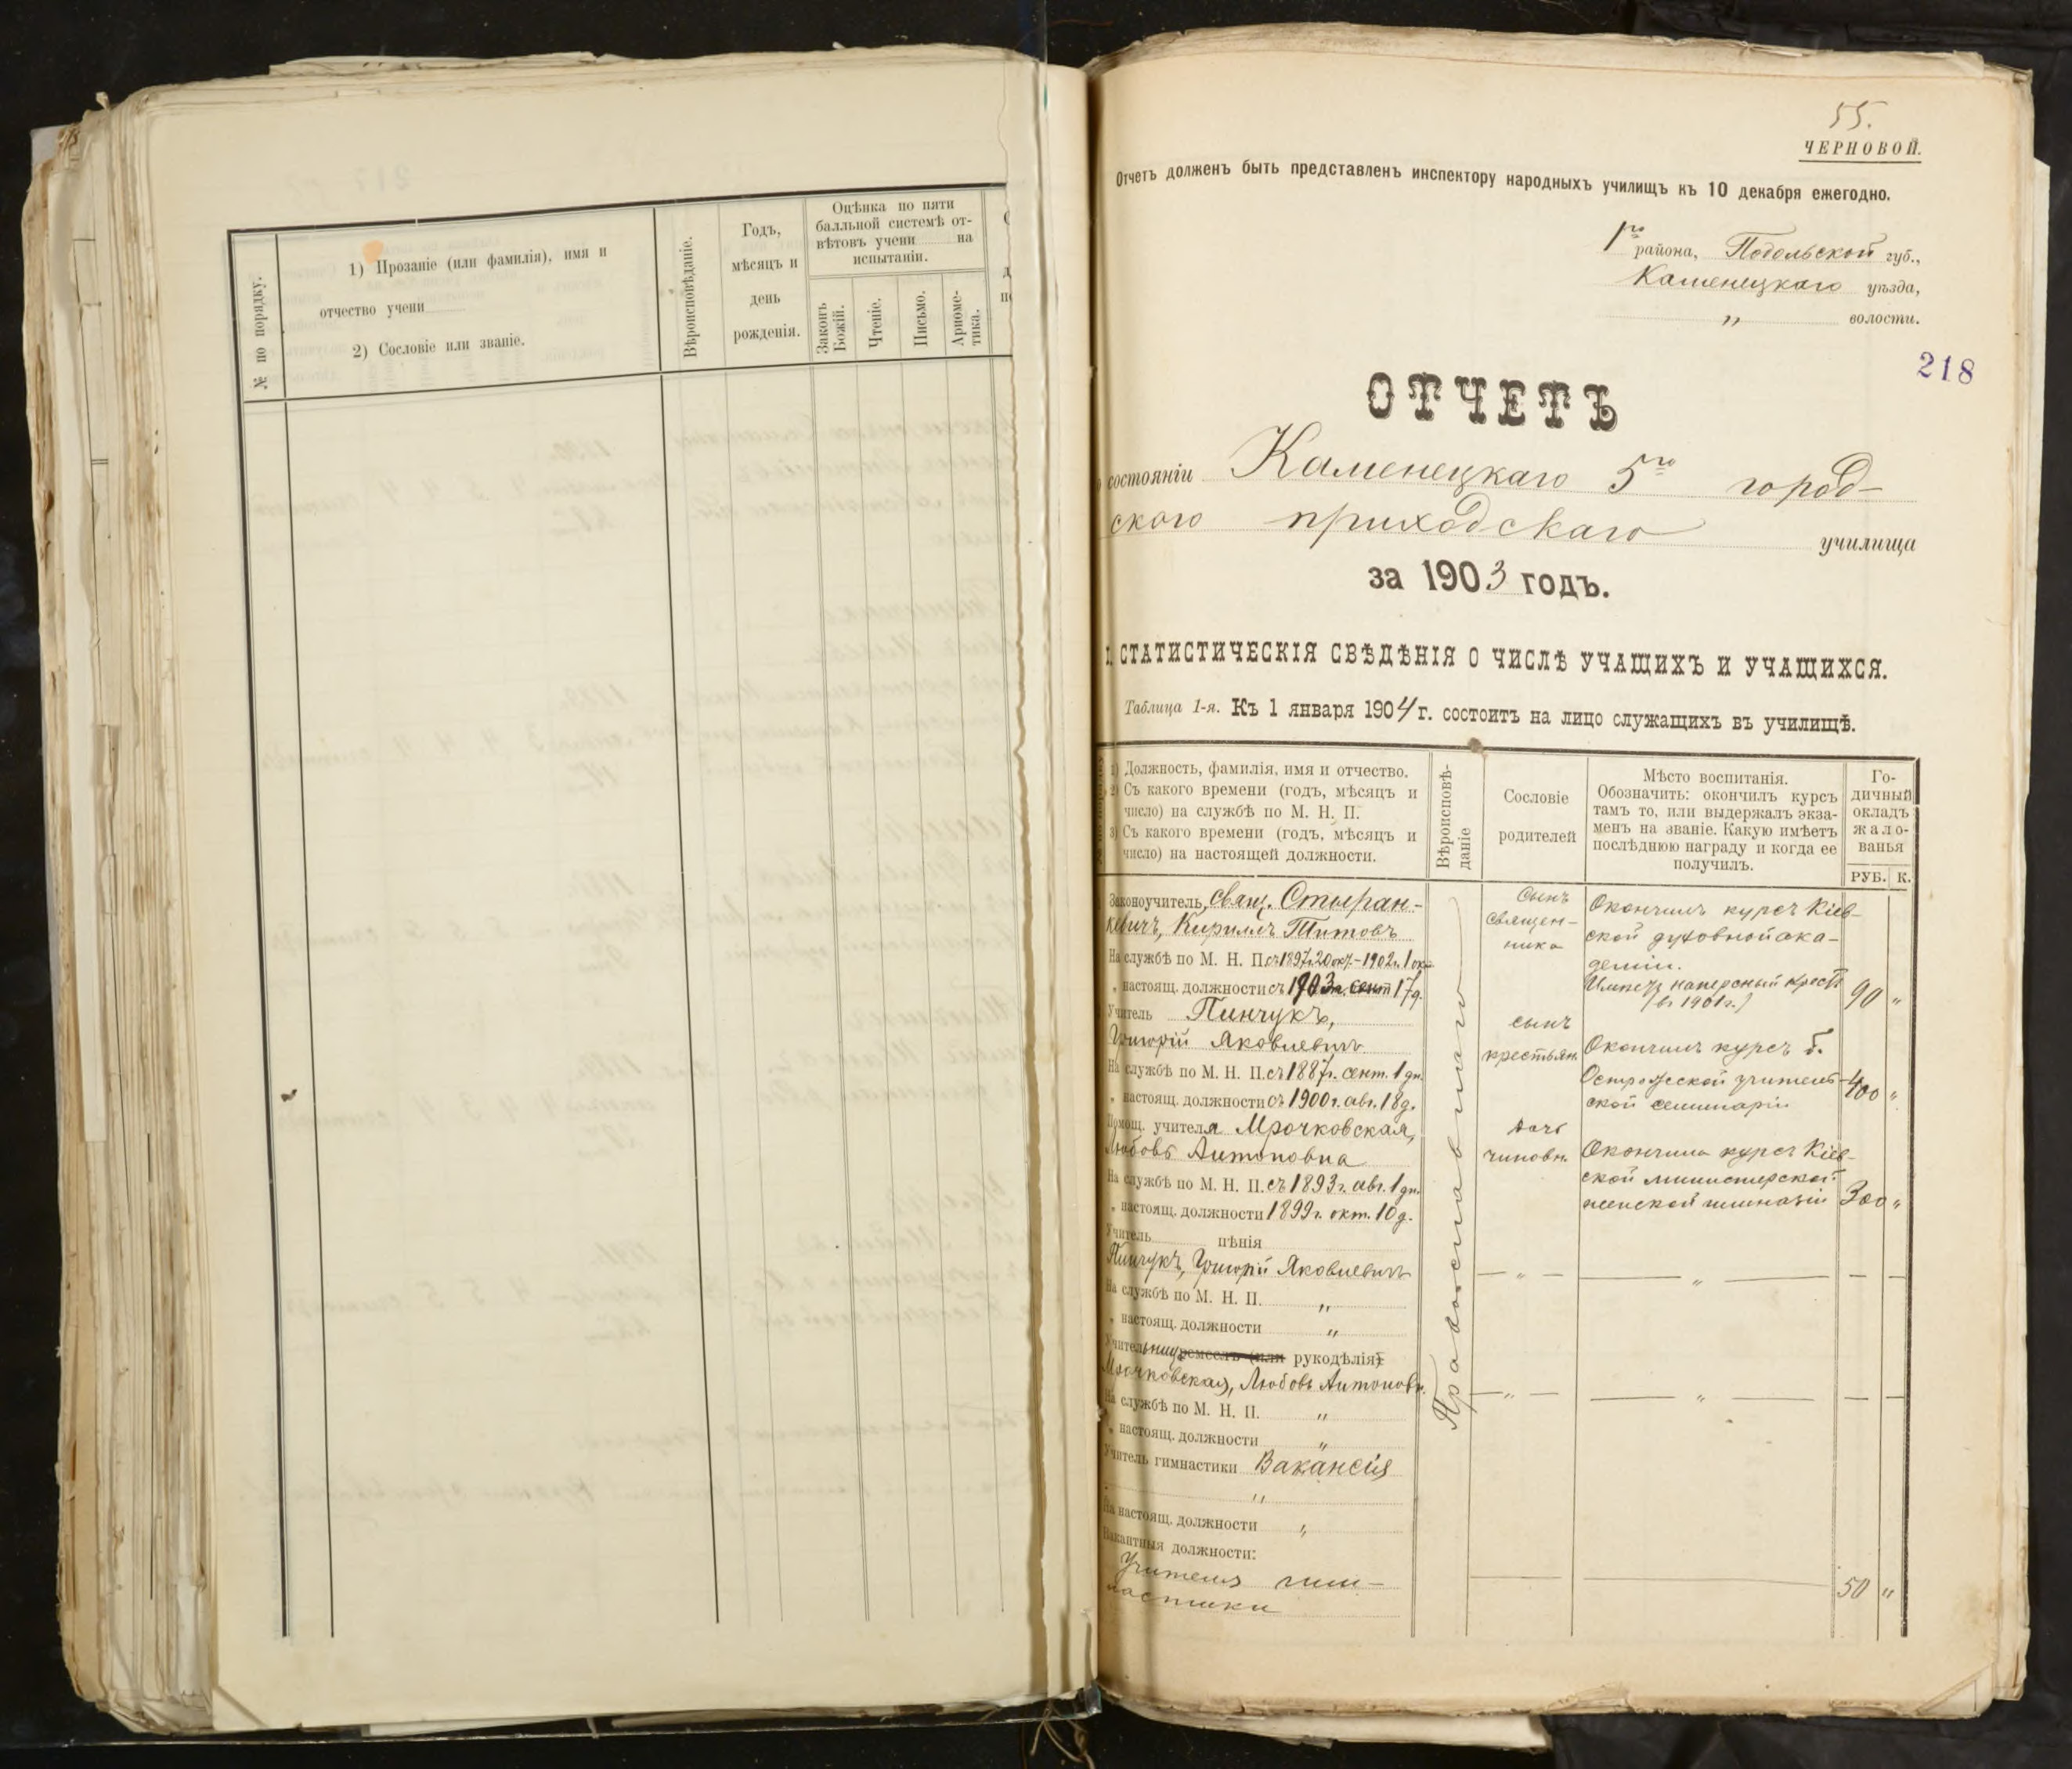 № по порядку.
1) Прозаніе (или фамилія), имя и
отчество учени
2) Сословіе или званіе.
Вѣроисповѣданіе.
Годъ,
мѣсяцъ и
день
рожденія.
Оцѣнка по пяти
балльной системѣ от-
вѣтовъ учени на
испытаніи.
Законъ
Божій.
Чтеніе.
Письмо.
Ариѳме-
тика.
55.
ЧЕРНОВОЙ.
Отчетъ долженъ быть представленъ инспектору народныхъ училищъ къ 10 декабря ежегодно.
1го района, Подольской губ.,
Каменецкаго уѣзда,
" волости.
218
ОТЧЕТЪ
о состояніи Каменецкаго 5го город-
ского приходскаго училища
за 1903 годъ.
I. СТАТИСТИЧЕСКІЯ СВѢДѢНІЯ О ЧИСЛѢ УЧАЩИХЪ И УЧАЩИХСЯ.
Таблица 1-я. Къ 1 января 1904 г. состоитъ на лицо служащихъ въ училищѣ.
1) Должность, фамилія, имя и отчество.
2) Съ какого времени (годъ, мѣсяцъ и
число) на службѣ по М. Н. П.
3) Съ какого времени (годъ, мѣсяцъ и
число) на настоящей должности.
Вѣроисповѣ-
даніе
Сословіе
родителей
Мѣсто воспитанія.
Обозначить: окончилъ курсъ
тамъ то, или выдержалъ экза-
менъ на званіе. Какую имѣетъ
послѣднюю награду и когда ее
получилъ.
Го-
дичный
окладъ
жало-
ванья
РУБ. К.
Законоучитель, свящ. Стыран-
кевичъ, Кириллъ Титовъ
На службѣ по М. Н. П. съ 1897г. 20 окт. - 1902г. 1 окт.
" настоящ. должности съ 1903г. сент 17 д.
сынъ
священ-
ника
Окончилъ курсъ Кіев-
ской духовной ака-
деміи.
Имѣетъ наперсный крестъ
(въ 1901г.)
90 "
Учитель Пинчукъ,
Григорій Яковлевичъ
На службѣ по М. Н. П. съ 1887г. сент. 1 дн.
" настоящ. должности съ 1900г. авг. 18 д.
сынъ
крестьян.
Окончилъ курсъ б.
Острожской учитель-
ской семинаріи
400 "
Помощ. учителя Мрочковская,
Любовь Антоновна
На службѣ по М. Н. П. съ 1893г. авг. 1 дн.
" настоящ. должности 1899г. окт. 10 д.
дочь
чиновн.
Окончила курсъ Кіев-
ской министерской
женской гимназіи
300 "
Православнаго
Учитель пѣнія
Пинчукъ, Григорій Яковлевичъ
— " — — " — — —
На службѣ по М. Н. П. "
" настоящ. должности "
Учительница ремеслъ (или рукодѣлія)
Мрочковская, Любовь Антоновн.
— " — — " — — —
На службѣ по М. Н. П. "
" настоящ. должности "
Учитель гимнастики Вакансія
"
На настоящ. должности "
Вакантныя должности:
Учителя гим-
настики
50 "